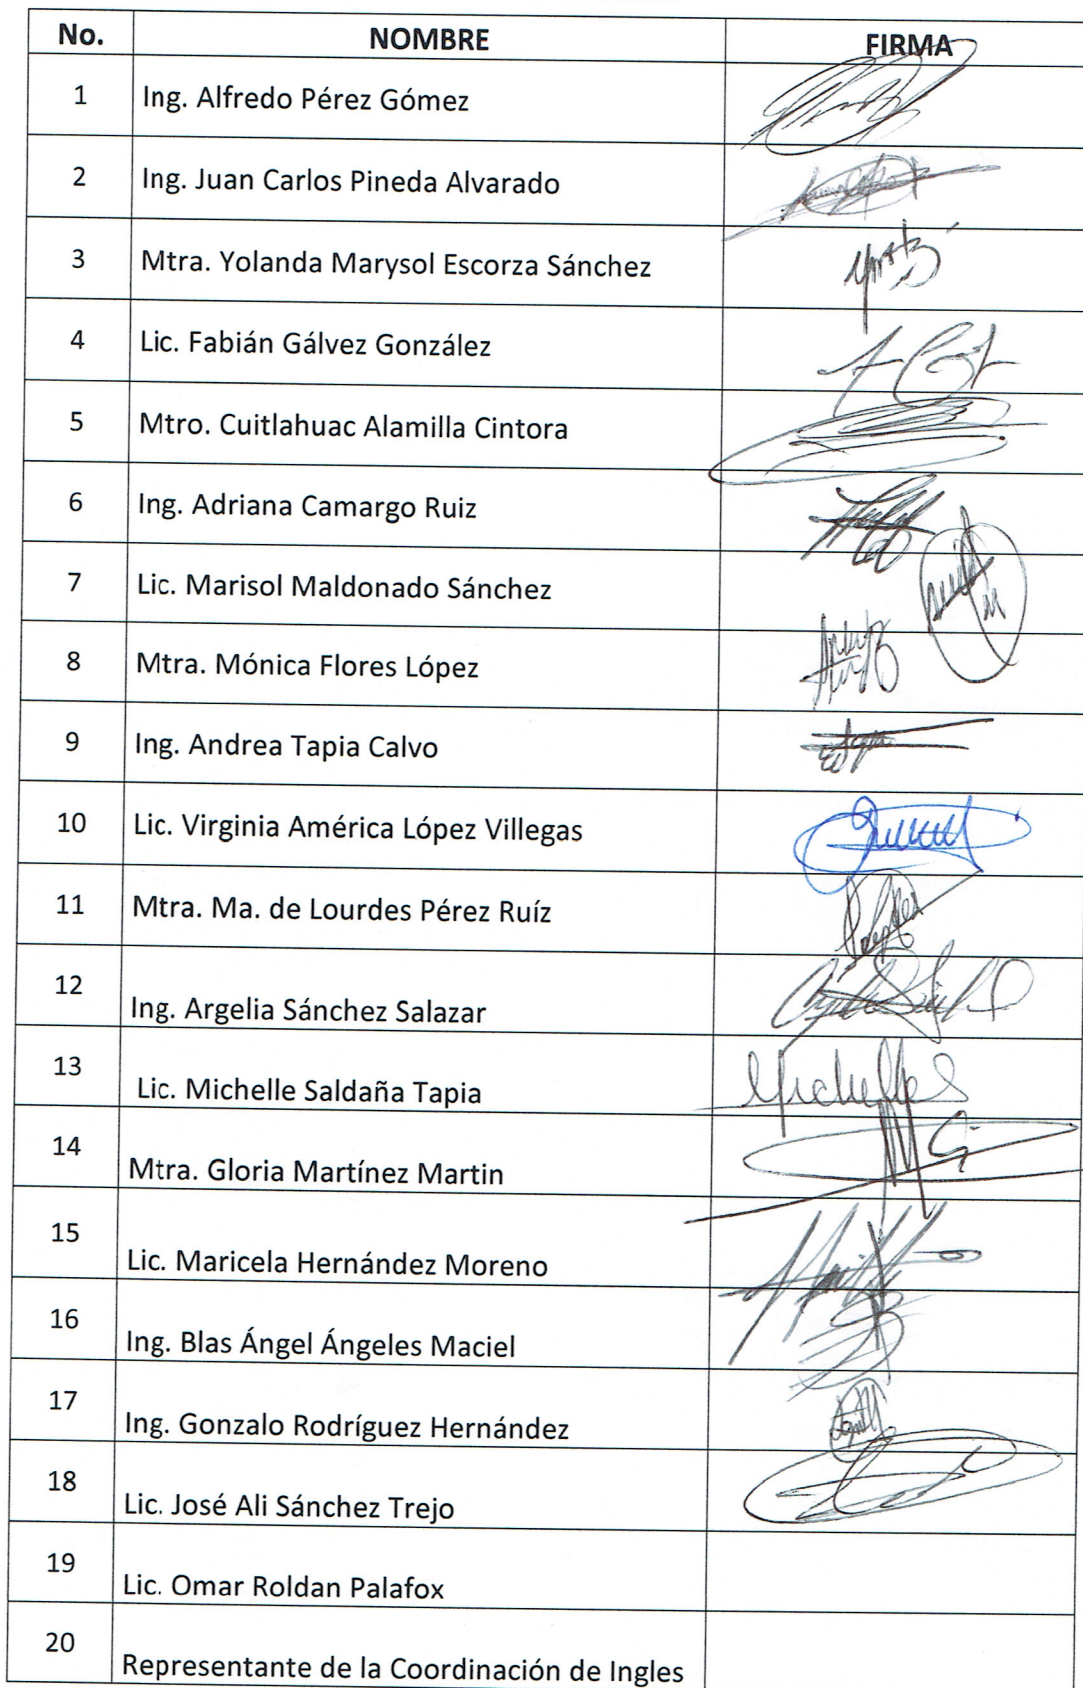 No. NOMBRE FIRMA
1 Ing. Alfredo Pérez Gómez
2 Ing. Juan Carlos Pineda Alvarado
3 Mtra. Yolanda Marysol Escorza Sánchez
4 Lic. Fabián Gálvez González
5 Mtro. Cuitlahuac Alamilla Cintora
6 Ing. Adriana Camargo Ruiz
7 Lic. Marisol Maldonado Sánchez
8 Mtra. Mónica Flores López
9 Ing. Andrea Tapia Calvo
10 Lic. Virginia América López Villegas
11 Mtra. Ma. de Lourdes Pérez Ruíz
12 Ing. Argelia Sánchez Salazar
13 Lic. Michelle Saldaña Tapia
14 Mtra. Gloria Martínez Martin
15 Lic. Maricela Hernández Moreno
16 Ing. Blas Ángel Ángeles Maciel
17 Ing. Gonzalo Rodríguez Hernández
18 Lic. José Ali Sánchez Trejo
19 Lic. Omar Roldan Palafox
20 Representante de la Coordinación de Ingles